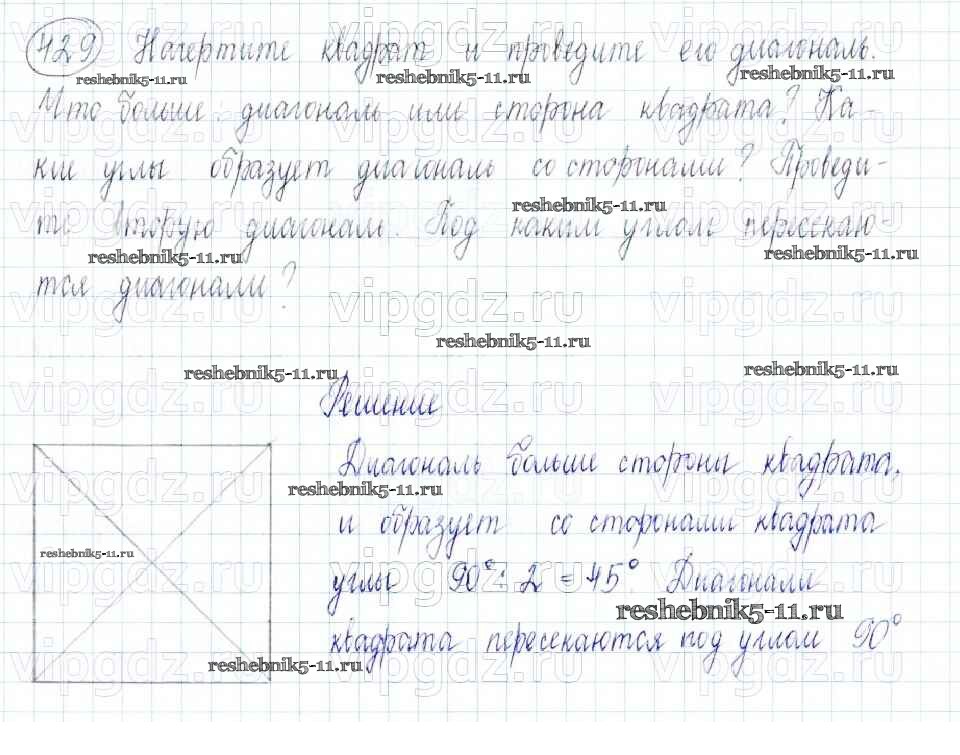 429 Начертите квадрат и проведите его диагональ.
reshebnik5-11.ru reshebnik5-11.ru reshebnik5-11.ru
Что больше: диагональ или сторона квадрата? Ка-
кие углы образует диагональ со сторонами? Проведи-
reshebnik5-11.ru
те вторую диагональ. Под каким углом пересекаю-
reshebnik5-11.ru reshebnik5-11.ru
тся диагонали?
vipgdz.ru vipgdz.ru vipgdz.ru
reshebnik5-11.ru
reshebnik5-11.ru reshebnik5-11.ru
Решение
Диагональ больше стороны квадрата,
reshebnik5-11.ru
и образует со сторонами квадрата
reshebnik5-11.ru
углы 90° : 2 = 45° Диагонали
reshebnik5-11.ru
квадрата пересекаются под углом 90°
reshebnik5-11.ru